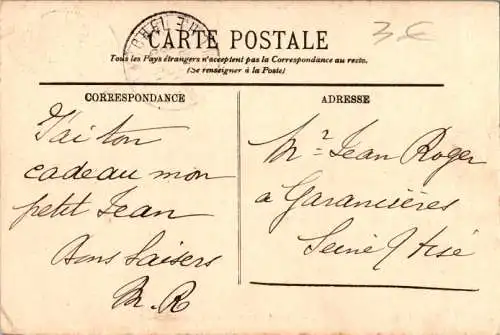 3€
CARTE POSTALE
Tous les Pays étrangers n'acceptent pas la Correspondance au recto.
(Se renseigner à la Poste)
CORRESPONDANCE
J'ai ton
cadeau mon
petit Jean
Bons baisers
M. R
ADRESSE
Mr Jean Roger
a Garancières
Seine & Oise